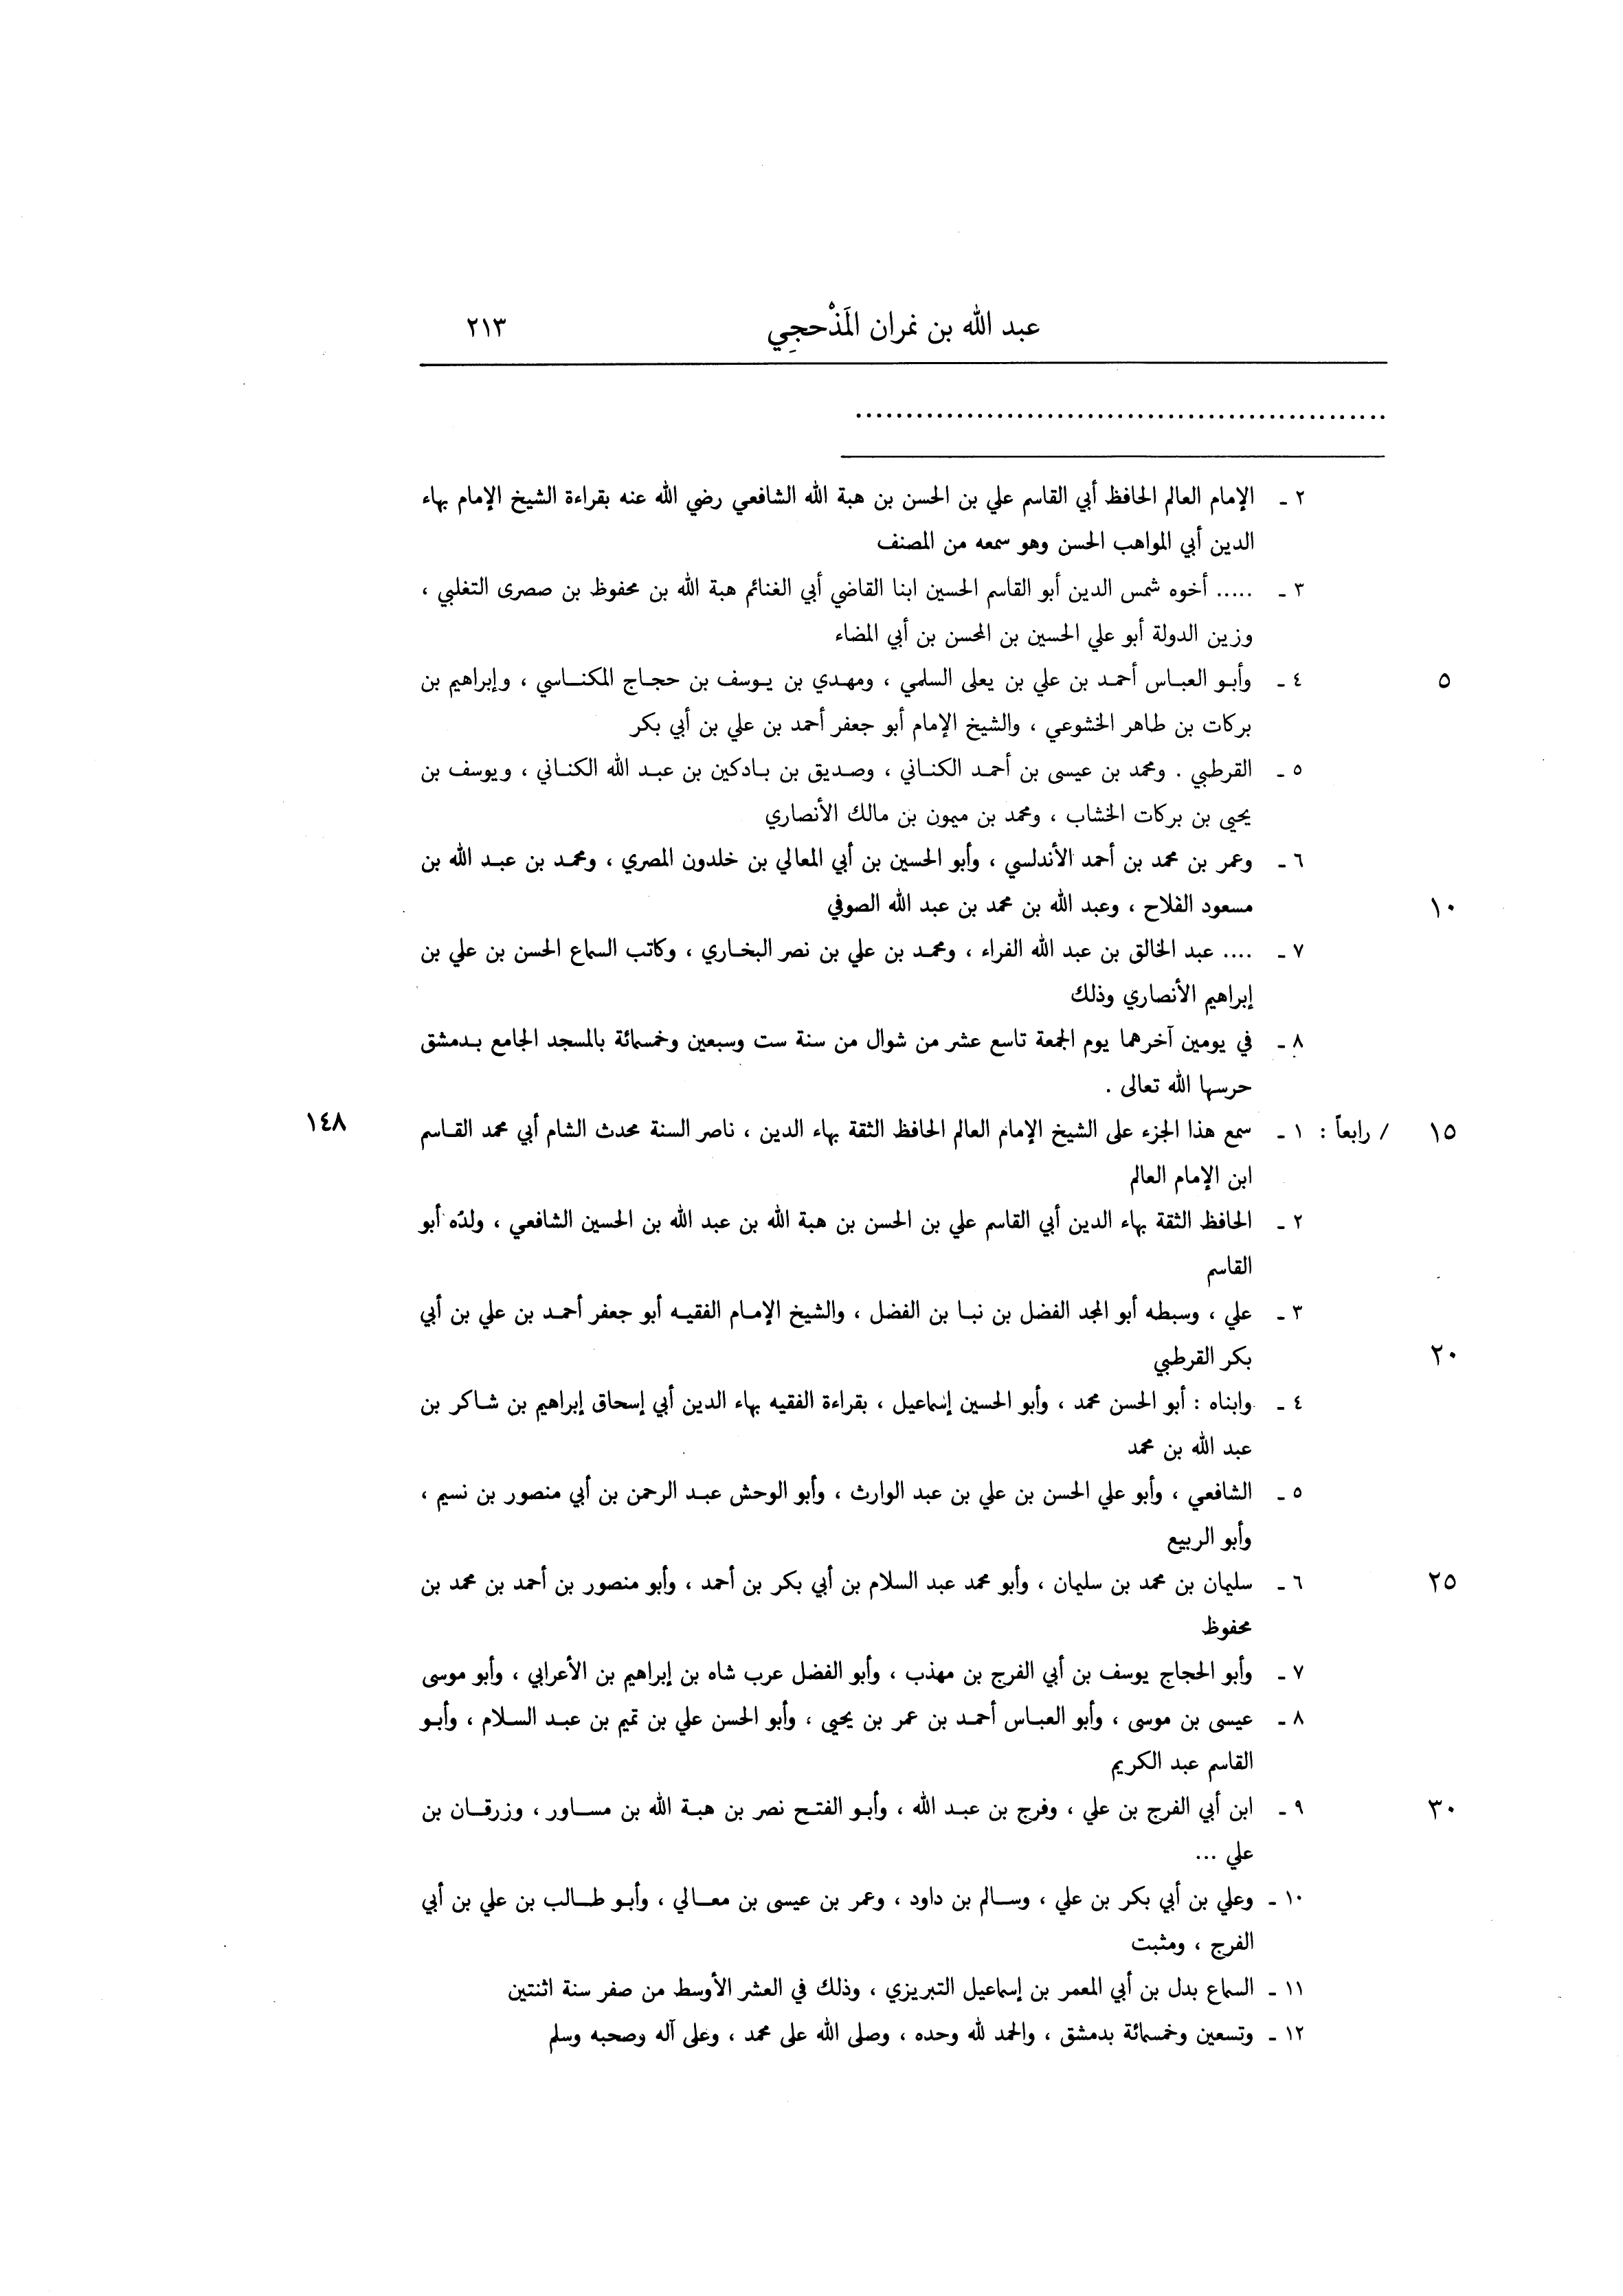 عبد الله بن نمران المَذْحجِي ٢١٣
......................................................
٢ ـ الإمام العالم الحافظ أبي القاسم علي بن الحسن بن هبة الله الشافعي رضي الله عنه بقراءة الشيخ الإمام بهاء
الدين أبي المواهب الحسن وهو سمعه من المصنف
٣ ـ ..... أخوه شمس الدين أبو القاسم الحسين ابنا القاضي أبي الغنائم هبة الله بن محفوظ بن صصرى التغلبي ،
وزين الدولة أبو علي الحسين بن المحسن بن أبي المضاء
٥ ٤ ـ وأبو العباس أحمد بن علي بن يعلى السلمي ، ومهدي بن يوسف بن حجاج المكناسي ، وإبراهيم بن
بركات بن طاهر الخشوعي ، والشيخ الإمام أبو جعفر أحمد بن علي بن أبي بكر
٥ ـ القرطبي . ومحمد بن عيسى بن أحمد الكناني ، وصديق بن بادكين بن عبد الله الكناني ، ويوسف بن
يحيى بن بركات الخشاب ، ومحمد بن ميمون بن مالك الأنصاري
٦ ـ وعمر بن محمد بن أحمد الأندلسي ، وأبو الحسين بن أبي المعالي بن خلدون المصري ، ومحمد بن عبد الله بن
١٠ مسعود الفلاح ، وعبد الله بن محمد بن عبد الله الصوفي
٧ ـ .... عبد الخالق بن عبد الله الفراء ، ومحمد بن علي بن نصر البخاري ، وكاتب السماع الحسن بن علي بن
إبراهيم الأنصاري وذلك
٨ ـ في يومين آخرهما يوم الجمعة تاسع عشر من شوال من سنة ست وسبعين وخمسمائة بالمسجد الجامع بدمشق
حرسها الله تعالى .
١٥ / رابعاً : ١ ـ سمع هذا الجزء على الشيخ الإمام العالم الحافظ الثقة بهاء الدين ، ناصر السنة محدث الشام أبي محمد القاسم ١٤٨
ابن الإمام العالم
٢ ـ الحافظ الثقة بهاء الدين أبي القاسم علي بن الحسن بن هبة الله بن عبد الله بن الحسين الشافعي ، ولدُه أبو
القاسم
٣ ـ علي ، وسبطه أبو المجد الفضل بن نبا بن الفضل ، والشيخ الإمام الفقيه أبو جعفر أحمد بن علي بن أبي
٢٠ بكر القرطبي
٤ ـ وابناه : أبو الحسن محمد ، وأبو الحسين إسماعيل ، بقراءة الفقيه بهاء الدين أبي إسحاق إبراهيم بن شاكر بن
عبد الله بن محمد
٥ ـ الشافعي ، وأبو علي الحسن بن علي بن عبد الوارث ، وأبو الوحش عبد الرحمن بن أبي منصور بن نسيم ،
وأبو الربيع
٢٥ ٦ ـ سليمان بن محمد بن سليمان ، وأبو محمد عبد السلام بن أبي بكر بن أحمد ، وأبو منصور بن أحمد بن محمد بن
محفوظ
٧ ـ وأبو الحجاج يوسف بن أبي الفرج بن مهذب ، وأبو الفضل عرب شاه بن إبراهيم بن الأعرابي ، وأبو موسى
٨ ـ عيسى بن موسى ، وأبو العباس أحمد بن عمر بن يحيى ، وأبو الحسن علي بن تميم بن عبد السلام ، وأبو
القاسم عبد الكريم
٣٠ ٩ ـ ابن أبي الفرج بن علي ، وفرج بن عبد الله ، وأبو الفتح نصر بن هبة الله بن مساور ، وزرقان بن
علي ...
١٠ ـ وعلي بن أبي بكر بن علي ، وسالم بن داود ، وعمر بن عيسى بن معالي ، وأبو طالب بن علي بن أبي
الفرج ، ومثبت
١١ ـ السماع بدل بن أبي المعمر بن إسماعيل التبريزي ، وذلك في العشر الأوسط من صفر سنة اثنتين
١٢ ـ وتسعين وخمسمائة بدمشق ، والحمد لله وحده ، وصلى الله على محمد ، وعلى آله وصحبه وسلم